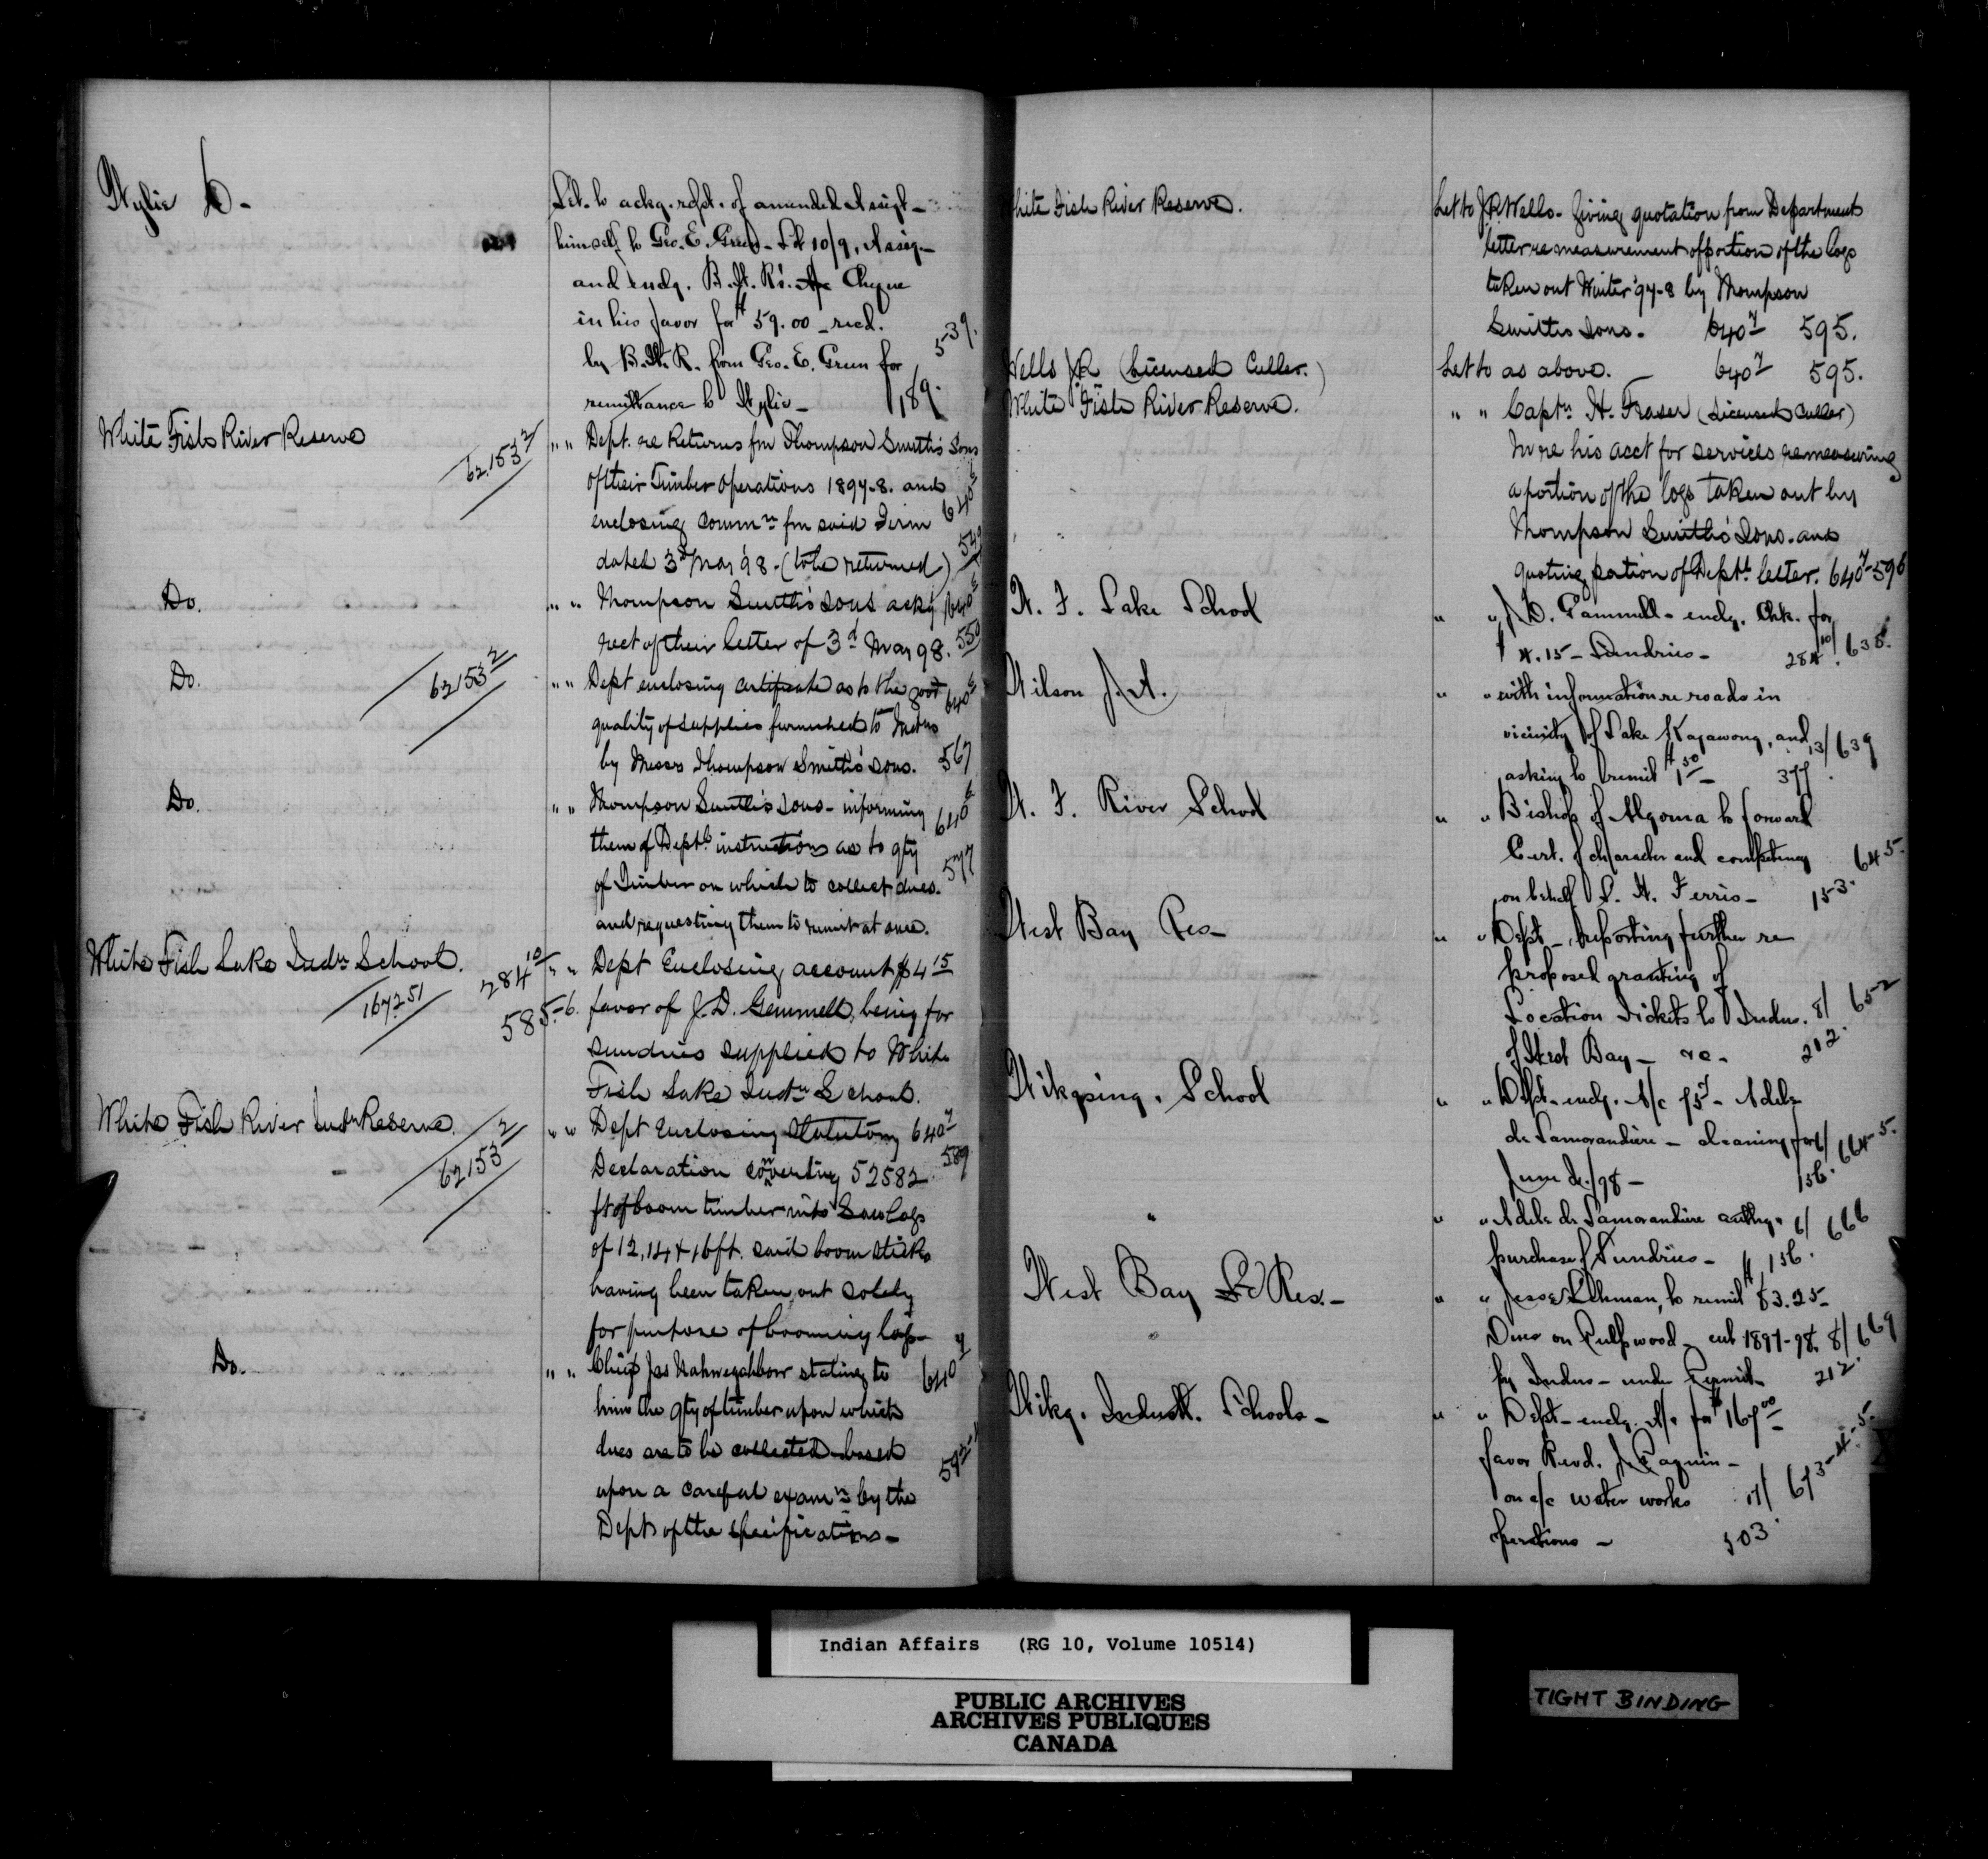 Wylie C. -
Let. to ackg. rcpt. of amended Assigt -
himself to Geo. E. Green - Lot 10/9, Assig. -
and endg. B.W. R's. Cheque
in his favor for $59.00 - recd. 539.
by B.W. R. from Geo. E. Green for
remittance to Wylie - 189.
White Fish River Reserve 62.153²
" " Dept. re Returns fm Thompson Smith's Sons
of their Timber Operations 1897-8. and 640⁶
enclosing commn fm said Firm
dated 3d May 98 - (to be returned) 549
Do. " " Thompson Smith's Sons ackg 640⁶
rect of their letter of 3d May 98. 550
Do. 62153²
" " Dept enclosing certificate as to the good 640⁶
quality of supplies furnished to Indns
by Messrs Thompson Smith's Sons. 567
Do. " " Thompson Smith's Sons - informing 640⁶
them of Depts instructions as to qty
of Timber on which to collect dues. 577
and requesting them to remit at once.
White Fish Lake Indn School. 284¹⁰
167251
" " Dept Enclosing account $4 15
585-6. favor of J. D. Gemmell, being for
sundries supplied to White
Fish Lake Indn School.
White Fish River Indn Reserve. 62153²
" " Dept Enclosing Statutory 640⁷
Declaration converting 52582 589
ft of boom timber into Saw logs
of 12, 14 & 16 ft. said boom sticks
having been taken out solely
for purpose of booming logs -
Do. " " Chief Jas Nahwegahbow stating to 640⁷
him the qty of timber upon which
dues are to be collected based
upon a careful examn by the
Dept of the specifications -
White Fish River Reserve.
Let to J R Wells - Giving quotation from Department
letter re measurement of portion of the logs
taken out Winter '97-8 by Thompson
Smiths Sons. 640⁷ 595.
Wells J.R (Licensed Culler.)
Let to as above. - 640⁷ 595.
White Fish River Reserve.
" " Captn H. Fraser (Licensed Culler)
In re his acct for services remeasuring
a portion of the logs taken out by
Thompson Smith's Sons. and
quoting portion of Depts letter. 640⁷ - 596
W. F. Lake School
" " J. D. Gammell - endg. Chk. for
$4.15 - Sundries - 284¹⁰/ 638.
Wilson J. A.
" " with information re roads in
vicinity of Lake Kagawong, and 13/ 639
asking to remit $1 50 - 377.
W. F. River School
" " Bishop of Algoma to forward
Cert. of character and competency 645.
on behalf S. H. Ferris - 153.
West Bay Res -
" " Dept - reporting further re
proposed granting of
Location Tickets to Indns. 8/ 652
of West Bay - 212.
Wikgsing. School
" " Dept - endg. A/c $5 - Adele
de Lamorandière - cleaning for 6/ 664-5.
June Qr. /98 - 156.
"
" " Adele de Lamorandière authg. 6/ 666
purchase of Sundries - 156.
West Bay Res. -
" " Jesse Lehman, to remit $3.25 -
"
Dues on Pulpwood - cut 1897-98. 8/ 669
by Indns - under Permit - 212.
Wikg. Industl. Schools -
" " Dept - endg. A/c for $167 00
favor Revd. J. Paquin -
on a/c water works 17/ 673-4-5.
operations - 503.
Indian Affairs (RG 10, Volume 10514)
PUBLIC ARCHIVES
ARCHIVES PUBLIQUES
CANADA
TIGHT BINDING